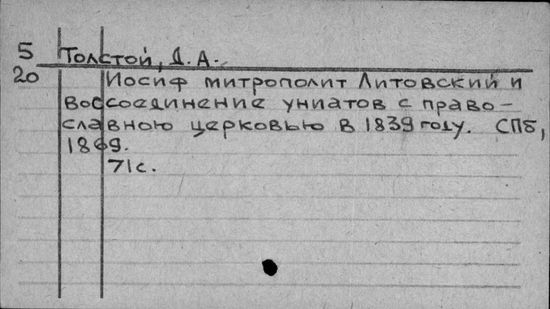 5 Толстой, Д. А.
20 Иосиф митрополит Литовский и
воссоединение униатов с право-
славною церковью в 1839 году. СПб,
1869.
71с.